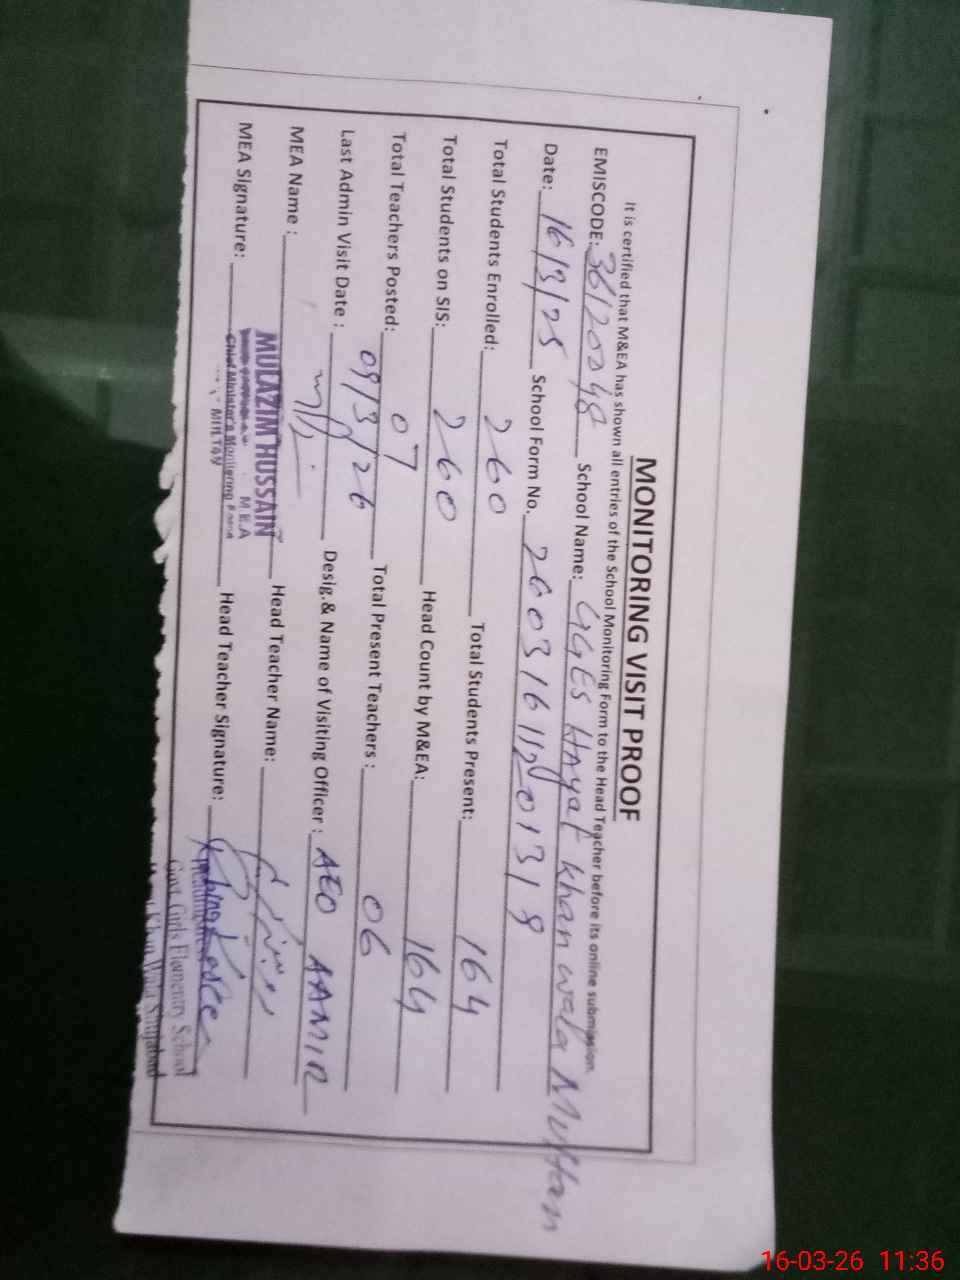 MONITORING VISIT PROOF
It is certified that M&EA has shown all entries of the School Monitoring Form to the Head Teacher before its online submission.
EMISCODE: 36120048 School Name: GGES Hayat Khan wala Multan
Date: 16/3/25 School Form No. 26031611201318
Total Students Enrolled: 260 Total Students Present: 164
Total Students on SIS: 260 Head Count by M&EA: 164
Total Teachers Posted: 07 Total Present Teachers : 06
Last Admin Visit Date : 09/3/26 Desig.& Name of Visiting Officer : AEO AAMIR
MEA Name : Head Teacher Name:
MULAZIM HUSSAIN
M.E.A
Chief Minister's Monitoring Force
MULTAN
MEA Signature: Head Teacher Signature:
Govt. Girls Elementry School
Khan Wala Shujabad
16-03-26 11:36